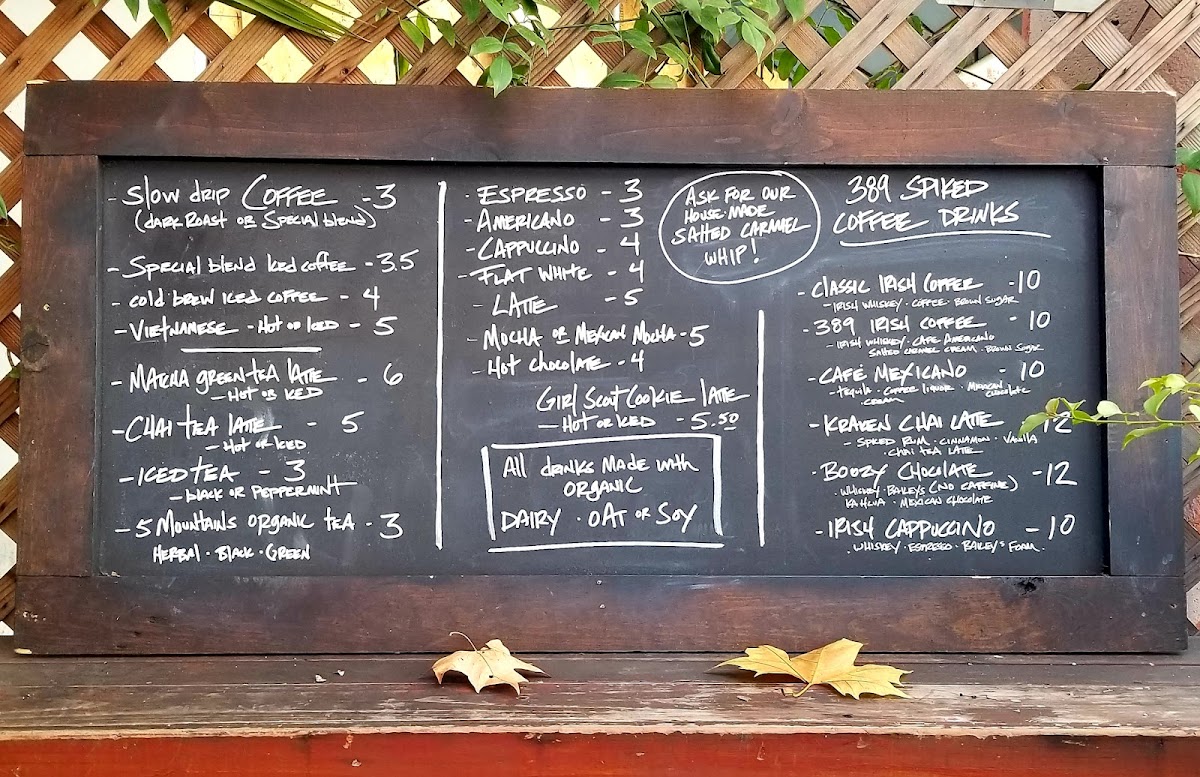 - Slow drip COFFEE - 3
(DARK ROAST OR Special blend)
- Special blend Iced coffee - 3.5
- cold brew iced coffee - 4
- Vietnamese - Hot or Iced - 5
- Matcha green tea late - 6
- Hot or Iced
- Chai tea late - 5
- Hot or Iced
- Iced tea - 3
- black or Peppermint
- 5 Mountains organic tea - 3
Herbal · Black · Green
- ESPRESSO - 3
- AMERICANO - 3
- CAPPUCCINO - 4
- FLAT WHITE - 4
- LATE - 5
- Mocha or Mexican Mocha - 5
- Hot chocolate - 4
Girl Scout Cookie late
- Hot or Iced - 5.50
All drinks made with
ORGANIC
DAIRY · OAT or SOY
ASK FOR OUR
HOUSE-MADE
SALTED CARAMEL
WHIP!
389 SPIKED
COFFEE DRINKS
- CLASSIC IRISH COFFEE - 10
- IRISH WHISKEY · COFFEE · BROWN SUGAR
- 389 IRISH COFFEE - 10
- IRISH WHISKEY · CAFE AMERICANO
SALTED CREAM · BROWN SUGAR
- CAFÉ MEXICANO - 10
- TEQUILA · COFFEE LIQUOR · MEXICAN
CHOCOLATE
CREAM
- KRAKEN CHAI LATE - 12
- SPICED RUM · CINNAMON · VANILLA
· CHAI TEA LATE
- BOOZY CHOCOLATE - 12
· WHISKEY · BAILEYS (NO CAFFINE)
KAHLUA · MEXICAN CHOCOLATE
- IRISH CAPPUCCINO - 10
· WHISKEY · ESPRESSO · BAILEY'S FOAM